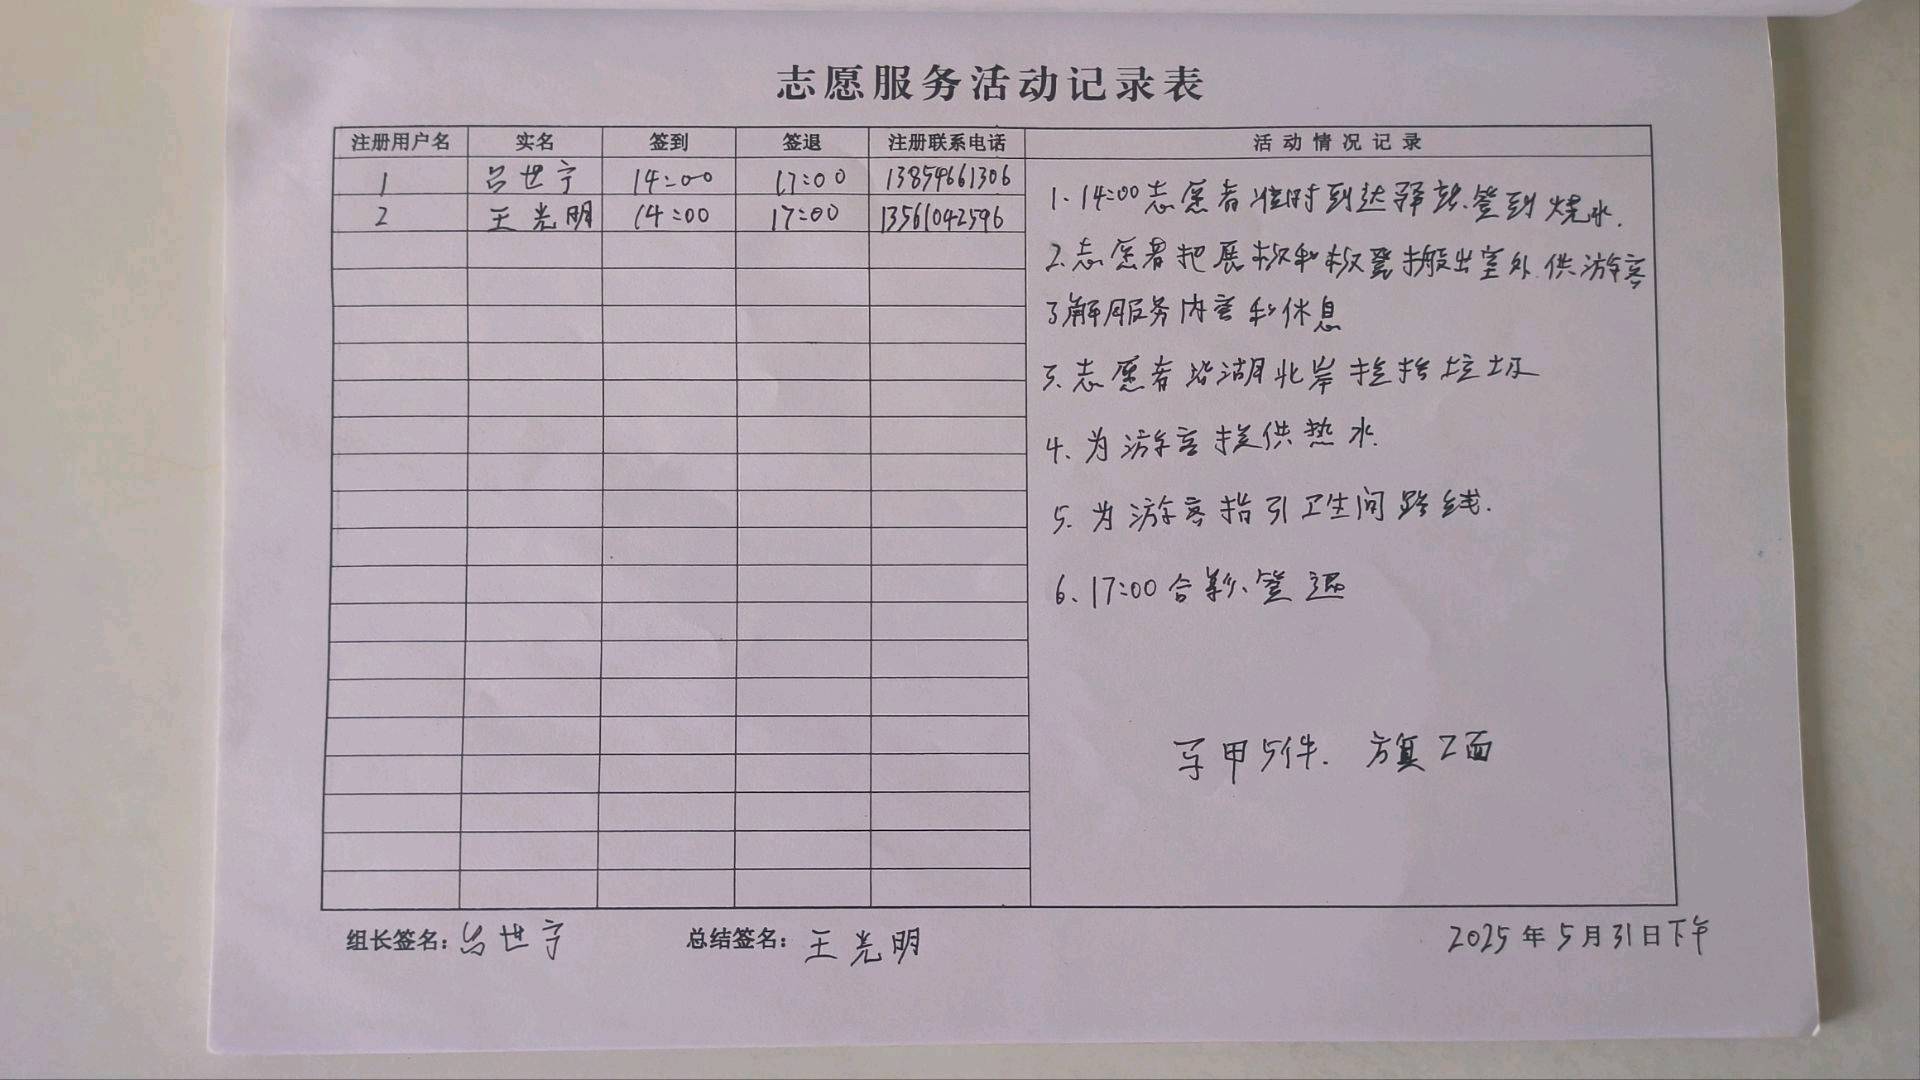 志愿服务活动记录表
注册用户名 实名 签到 签退 注册联系电话 活动情况记录
1 吕世宁 14:00 17:00 13854661306
2 王光明 14:00 17:00 13561042596
1. 14:00志愿者准时到达驿站.签到烧水.
2.志愿者把展板和板凳搬出室外.供游客
了解服务内容和休息
3.志愿者沿湖北岸捡拾垃圾
4.为游客提供热水.
5.为游客指引卫生间路线.
6、17:00合影、签退
马甲5件. 旗2面
组长签名:吕世宁 总结签名:王光明 2025年5月31日下午